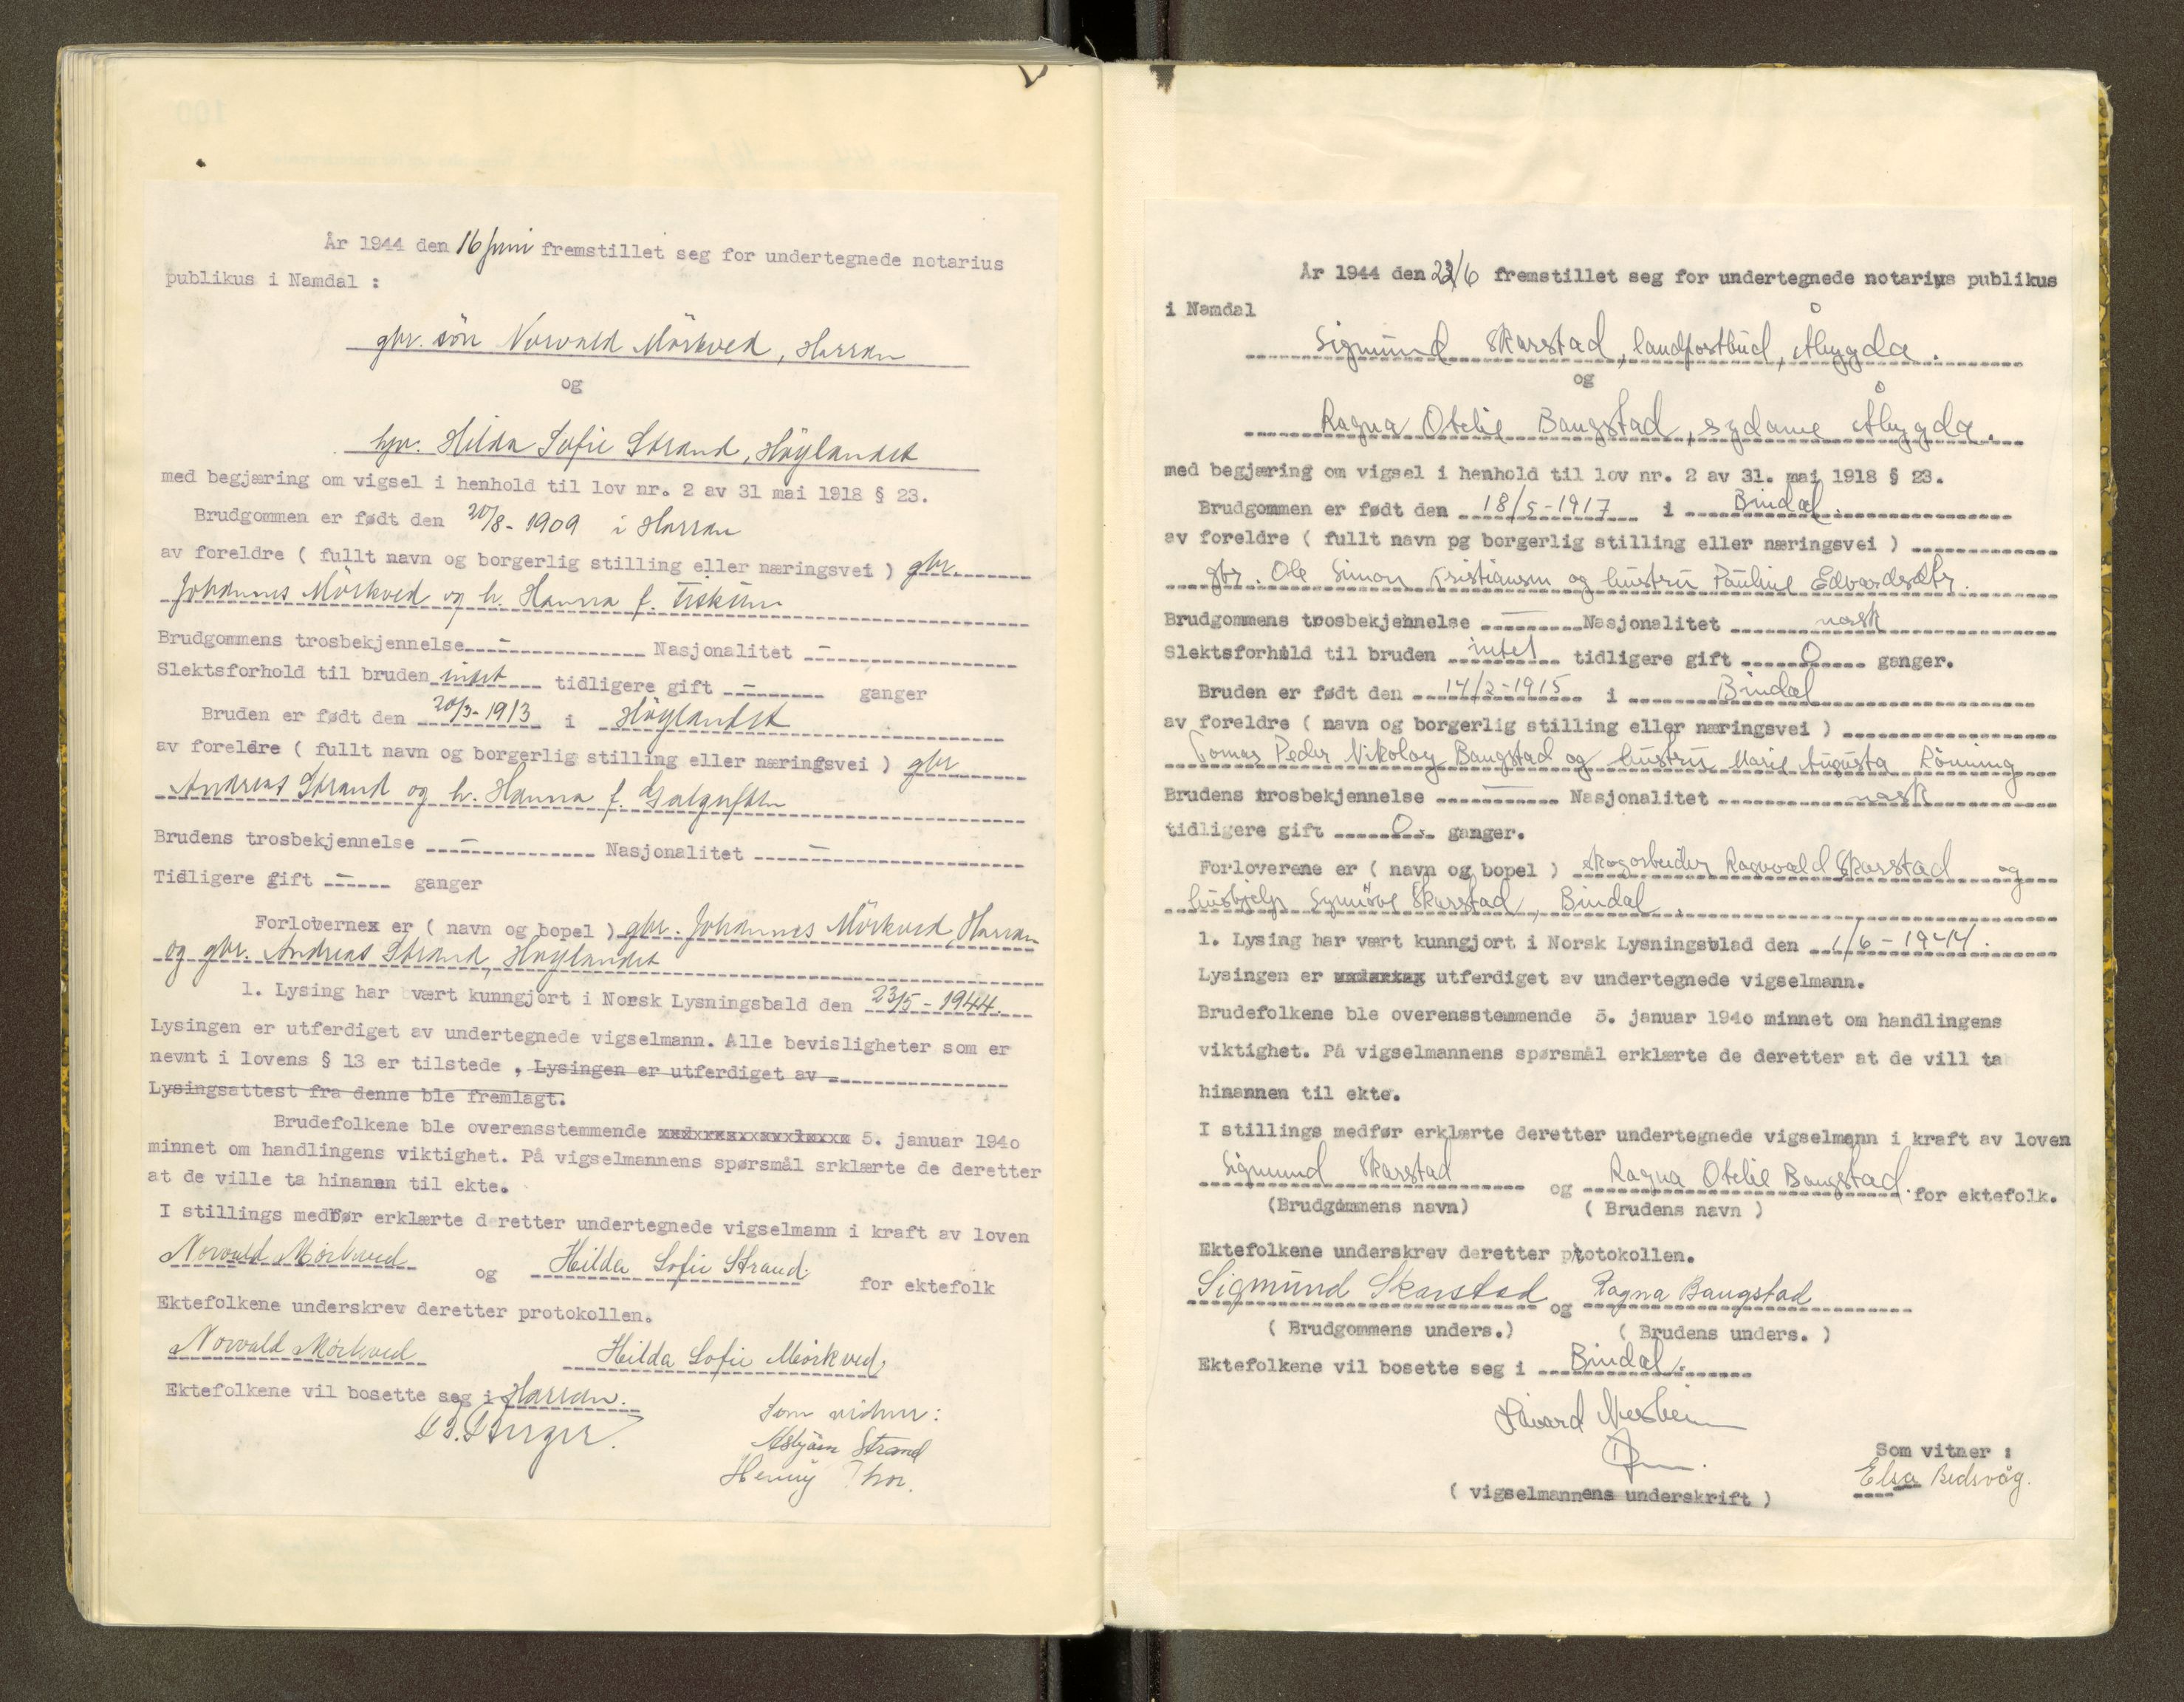 År 1944 den 16 juni fremstillet seg for undertegnede notarius
publikus i Namdal :
gbr. sön Norvald Mörkved, Harran
og
hpr. Hilda Sofie Strand, Höylandet
med begjæring om vigsel i henhold til lov nr. 2 av 31 mai 1918 § 23.
Brudgommen er født den 20/8 - 1909 i Harran
av foreldre ( fullt navn og borgerlig stilling eller næringsvei ) gbr.
Johannes Mörkved og h. Hanna f. Fiskum
Brudgommens trosbekjennelse - Nasjonalitet -
Slektsforhold til bruden intet tidligere gift - ganger
Bruden er født den 20/3 - 1913 i Höylandet
av foreldre ( fullt navn og borgerlig stilling eller næringsvei ) gbr
Andreas Strand og h. Hanna f. Galguften
Brudens trosbekjennelse - Nasjonalitet -
Tidligere gift - ganger
Forlovernex er ( navn og bopel ) gbr. Johannes Mörkved, Harran
og gbr. Andreas Strand, Höylandet
1. Lysing har vært kunngjort i Norsk Lysningsbald den 23/5 - 1944.
Lysingen er utferdiget av undertegnede vigselmann. Alle bevisligheter som er
nevnt i lovens § 13 er tilstede , Lysingen er utferdiget av
Lysingsattest fra denne ble fremlagt.
Brudefolkene ble overensstemmende 5. januar 1940
minnet om handlingens viktighet. På vigselmannens spørsmål srklærte de deretter
at de ville ta hinanen til ekte.
I stillings medfør erklærte deretter undertegnede vigselmann i kraft av loven
Norvald Mörkved og Hilda Sofie Strand. for ektefolk
Ektefolkene underskrev deretter protokollen.
Norvald Mörkved Hilda Sofie Mörkved,
Ektefolkene vil bosette seg i Harran.
Som vidner:
Asbjörn Strand
Henny Thor.
År 1944 den 23/6 fremstillet seg for undertegnede notarius publikus
i Namdal
Sigmund Skarstad, landpostbud, Åbygda.
og
Ragna Otelie Bangstad, sydame Åbygda.
med begjæring om vigsel i henhold til lov nr. 2 av 31. mai 1918 § 23.
Brudgommen er født den 18/5 - 1917 i Bindal.
av foreldre ( fullt navn pg borgerlig stilling eller næringsvei )
gbr. Ole Simon Kristiansen og hustru Pauline Edvardsdtr.
Brudgommens trosbekjennelse - Nasjonalitet norsk
Slektsforhold til bruden intet tidligere gift 0 ganger.
Bruden er født den 14/2 - 1915 i Bindal
av foreldre ( navn og borgerlig stilling eller næringsvei )
Tomas Peder Nikolay Bangstad og hustru Marie Augusta Rönning
Brudens trosbekjennelse - Nasjonalitet norsk
tidligere gift 0. ganger.
Forloverene er ( navn og bopel ) skogarbeider Ragnvald Skarstad og
hushjelp Synnöve Skarstad, Bindal.
1. Lysing har vært kunngjort i Norsk Lysningsblad den 1/6 - 1944.
Lysingen er utferdiget av undertegnede vigselmann.
Brudefolkene ble overensstemmende 5. januar 1940 minnet om handlingens
viktighet. På vigselmannens spørsmål erklærte de deretter at de vill ta
hinannen til ekte.
I stillings medfør erklærte deretter undertegnede vigselmann i kraft av loven
Sigmund Skarstad og Ragna Otelie Bangstad. for ektefolk.
(Brudgommens navn) ( Brudens navn )
Ektefolkene underskrev deretter protokollen.
Sigmund Skarstad og Ragna Bangstad
( Brudgommens unders.) ( Brudens unders. )
Ektefolkene vil bosette seg i Bindal.
Håvard
Som vitner :
Elsa Bedsvåg.
( vigselmannens underskrift )